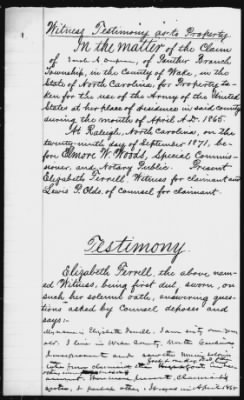 Witness Testimony as to Property
In the matter of the Claim
of, of Panther Branch
Township, in the County of Wake, in the
State of North Carolina, for Property ta-
ken for the use of the Army of the United
States at her place of residence in said county
during the month of April A.D. 1865.
At Raleigh, North Carolina, on the
twenty-ninth day of September 1871, be-
fore Elmore W. Woods, Special Commis-
sioner, and Notary Public. Present
Elizabeth Ferrell, Witness for claimant and
Lewis P. Olds, of Counsel for claimant.
Testimony.
Elizabeth Ferrell, the above nam-
ed Witness, being first dul, sworn, on
such her solemn oath, answering ques-
tions asked by Counsel deposes and
says:-
My name is Elizabeth Ferrell. I am sixty one years
old. I live in Wake County, North Carolina
saw the Union soldiers
take from claimant
in April 1865